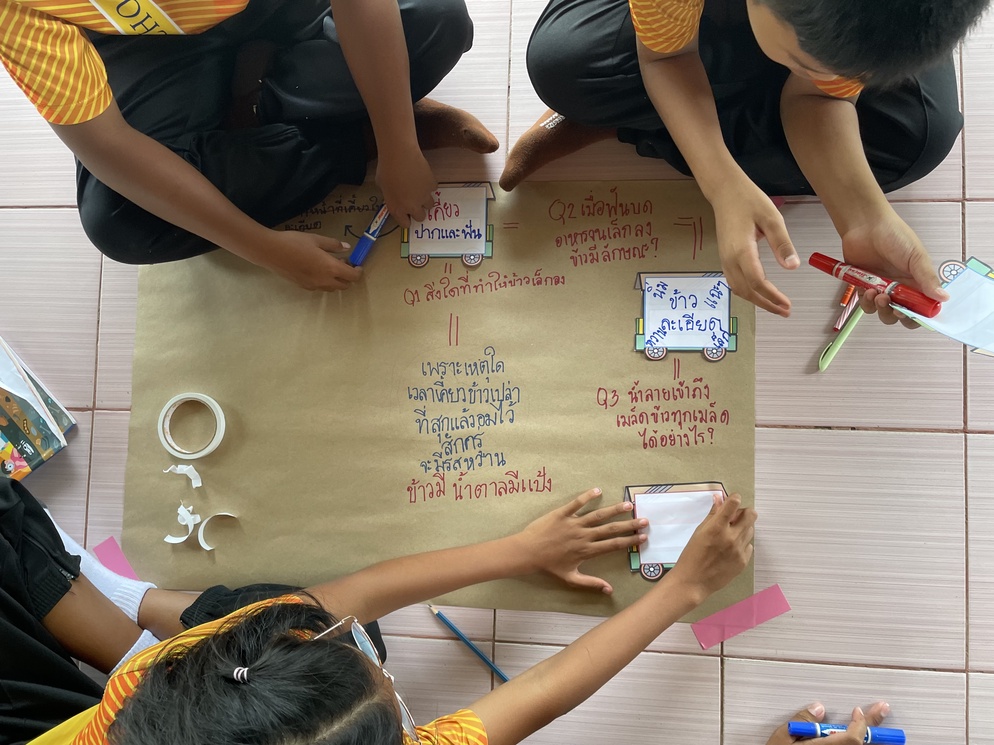 OHT
เคี้ยว
ปากและฟัน
=
Q1 สิ่งใดที่ทำให้ข้าวเล็กลง
Q2 เมื่อฟันบด
อาหารจนเล็กลง
ข้าวมีลักษณะ?
ข้าว
ละเอียด
นิ่ม
หวาน
Q3 น้ำลายเข้าถึง
เมล็ดข้าวทุกเมล็ด
ได้อย่างไร?
เพราะเหตุใด
เวลาเคี้ยวข้าวเปล่า
ที่สุกแล้วอมไว้
สักครู่
จะมีรสหวาน
ข้าวมี น้ำตาลมีแป้ง